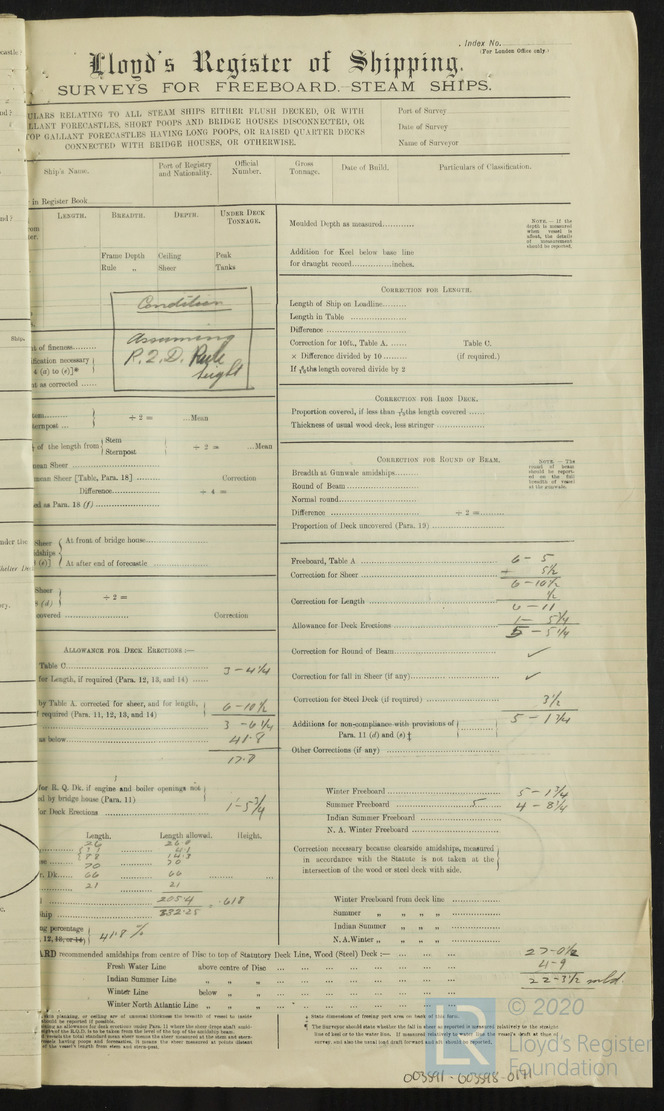 Index No.
(For London Office only.)
Lloyd's Register of Shipping.
SURVEYS FOR FREEBOARD. STEAM SHIPS.
ULARS RELATING TO ALL STEAM SHIPS EITHER FLUSH DECKED, OR WITH
LLANT FORECASTLES, SHORT POOPS AND BRIDGE HOUSES DISCONNECTED, OR
TOP GALLANT FORECASTLES HAVING LONG POOPS, OR RAISED QUARTER DECKS
CONNECTED WITH BRIDGE HOUSES, OR OTHERWISE.
Port of Survey
Date of Survey
Name of Surveyor
Ship's Name.
Port of Registry and Nationality.
Official Number.
Gross Tonnage.
Date of Build.
Particulars of Classification.
in Register Book
LENGTH. BREADTH. DEPTH. UNDER DECK TONNAGE.
Frame Depth Ceiling Peak
Rule „ Sheer Tanks
Condition
assuming
R.Q.D. Rule
hight
t of fineness
ification necessary
4 (a) to (e)]*
nt as corrected
÷ 2 = ...Mean
ternpost ...
of the length from Stem
Sternpost ÷ 2 = ...Mean
mean Sheer
mean Sheer [Table, Para. 18] Correction
Difference ÷ 4 =
ed as Para. 18 (f)
At front of bridge house
At after end of forecastle
÷ 2 =
overed Correction
ALLOWANCE FOR DECK ERECTIONS :—
Table C 3 - 4¼
for Length, if required (Para. 12, 13, and 14)
by Table A. corrected for sheer, and for length,
required (Para. 11, 12, 13, and 14) 6 - 10½
3 - 6¼
as below 41.8
17.8
for R. Q. Dk. if engine and boiler openings not
ed by bridge house (Para. 11)
or Deck Erections 1-5¾
Length. Length allowed. Height.
70 70
66 66
21 21
205.4 = .618
ship 332.25
ng percentage
41.8 %
ARD recommended amidships from centre of Disc to top of Statutory Deck Line, Wood (Steel) Deck :—
Fresh Water Line above centre of Disc
Indian Summer Line „ „ „
Winter Line below „ „
Winter North Atlantic Line „ „ „
Moulded Depth as measured
NOTE.—If the depth is measured when vessel is afloat, the details of measurement should be reported.
Addition for Keel below base line
for draught record inches.
CORRECTION FOR LENGTH.
Length of Ship on Loadline
Length in Table
Difference
Correction for 10ft., Table A. Table C.
× Difference divided by 10 (if required.)
If 6/10ths length covered divide by 2
CORRECTION FOR IRON DECK.
Proportion covered, if less than 7/10ths length covered
Thickness of usual wood deck, less stringer
CORRECTION FOR ROUND OF BEAM.
NOTE — The round of beam should be reported on the full breadth of vessel at the gunwale.
Breadth at Gunwale amidships
Round of Beam
Normal round
Difference ÷ 2 =
Proportion of Deck uncovered (Para. 19)
Freeboard, Table A 6 - 5
Correction for Sheer + 5½
6 - 10½
Correction for Length ½
6 - 11
Allowance for Deck Erections 1 - 5¾
5 - 5¼
Correction for Round of Beam ✓
Correction for fall in Sheer (if any) ✓
Correction for Steel Deck (if required) 3½
5 - 1¾
Additions for non-compliance with provisions of
Para. 11 (d) and (e) ‡
Other Corrections (if any)
Winter Freeboard 5 - 1¾
Summer Freeboard 5 4 - 8¼
Indian Summer Freeboard
N. A. Winter Freeboard
Correction necessary because clearside amidships, measured
in accordance with the Statute is not taken at the
intersection of the wood or steel deck with side.
Winter Freeboard from deck line
Summer „ „ „ „
Indian Summer „ „ „ „
N. A. Winter „ „ „ „
27-0½
4-9
22-3½ mld
‡ State dimensions of freeing port area on back of this form.
¶ The Surveyor should state whether the fall in sheer as reported is measured relatively to the straight
line of keel or to the water line. If measured relatively to water line the vessel's draft at time of
survey, and also the usual load draft forward and aft should be reported.
LR
© 2020
Lloyd's Register
Foundation
003591-003598-0171